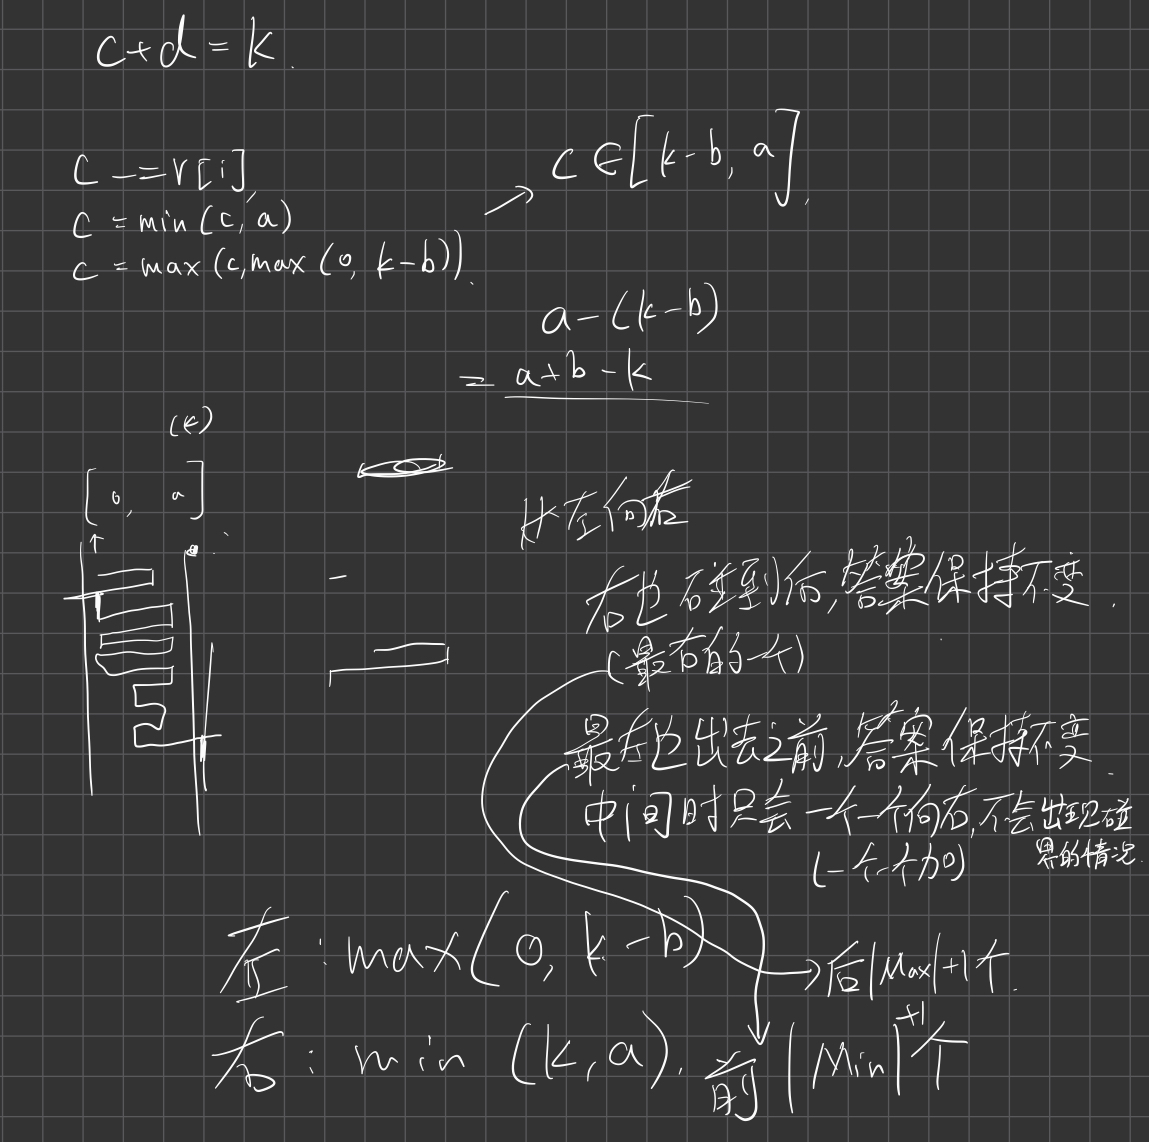 c+d=k.
c-=v[i],
c=min(c,a)
c=max(c,max(0,k-b)).
c∈[k-b,a].
a-(k-b)
=a+b-k
(k)
[0, a]
从左向右
右也碰到后,答案保持不变.
(最右的一个)
最左也出去之前,答案保持不变.
中间时只会一个一个向右,不会出现碰
界的情况.
(一个一个加)
左:max(0,k-b)
后|Max|+1个.
右:min(k,a).
前|Min|+1个